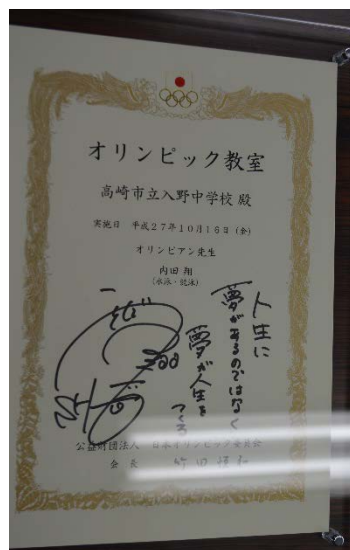 オリンピック教室
高崎市立入野中学校 殿
実施日 平成27年10月16日(金)
オリンピアン先生
内田 翔
(水泳・競泳)
人生に
夢があるのではなく
夢が人生を
つくる
公益財団法人 日本オリンピック委員会
会長 竹田恆和